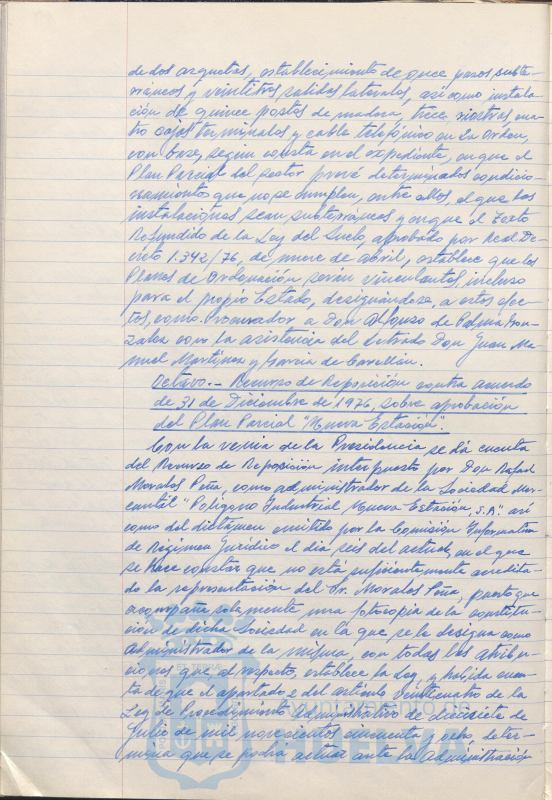 de dos arquetas, establecimiento de once pasos subte-
rráneos y veintitres salidas laterales, así como instala-
ción de quince postes de madera, trece riostras cua-
tro cajas terminales y cable telefónico en La Orden,
con base, según consta en el expediente, en que el
Plan Parcial del sector prevé determinados condicio-
namientos que no se cumplen, entre ellos, el que las
instalaciones sean subterráneas y en que el Texto
Refundido de la Ley del Suelo, aprobado por Real De-
creto 1.342/76, de nueve de abril, establece que los
Planes de Ordenación serán vinculantes, incluso
para el propio Estado, designándose, a estos efec-
tos, como Procurador a Don Alfonso de Palma Gon-
zalez con la asistencia del Letrado Don Juan Ma-
nuel Martinez y Garcia de
Octavo.- Recurso de Reposición contra acuerdo
de 31 de Diciembre de 1976, sobre aprobación
del Plan Parcial "Nueva Estación".
Con la venia de la Presidencia se dá cuenta
del Recurso de Reposición interpuesto por Don Rafael
Morales Peña, como administrador de la Sociedad Mer-
cantil "Polígono Industrial Nueva Estación, S.A" así
como del dictamen emitido por la Comisión Informativa
de Régimen Jurídico el dia seis del actual, en el que
se hace constar que no está suficientemente acredita-
do la representación del Sr. Morales Peña, puesto que
acompaña solamente una fotocopia de la constitu-
ción de dicha Sociedad en la que se le designa como
Administrador de la misma, con todas las atribu-
ciones que, al respecto, establece la Ley, y habida cuen-
ta de que el apartado e del artículo veinticuatro de la
Ley de Procedimiento Administrativo de diecisiete de
Julio de mil novecientos cincuenta y ocho, deter-
mina que se podrá actuar ante la Administración
Ayuntamiento de
HUELVA